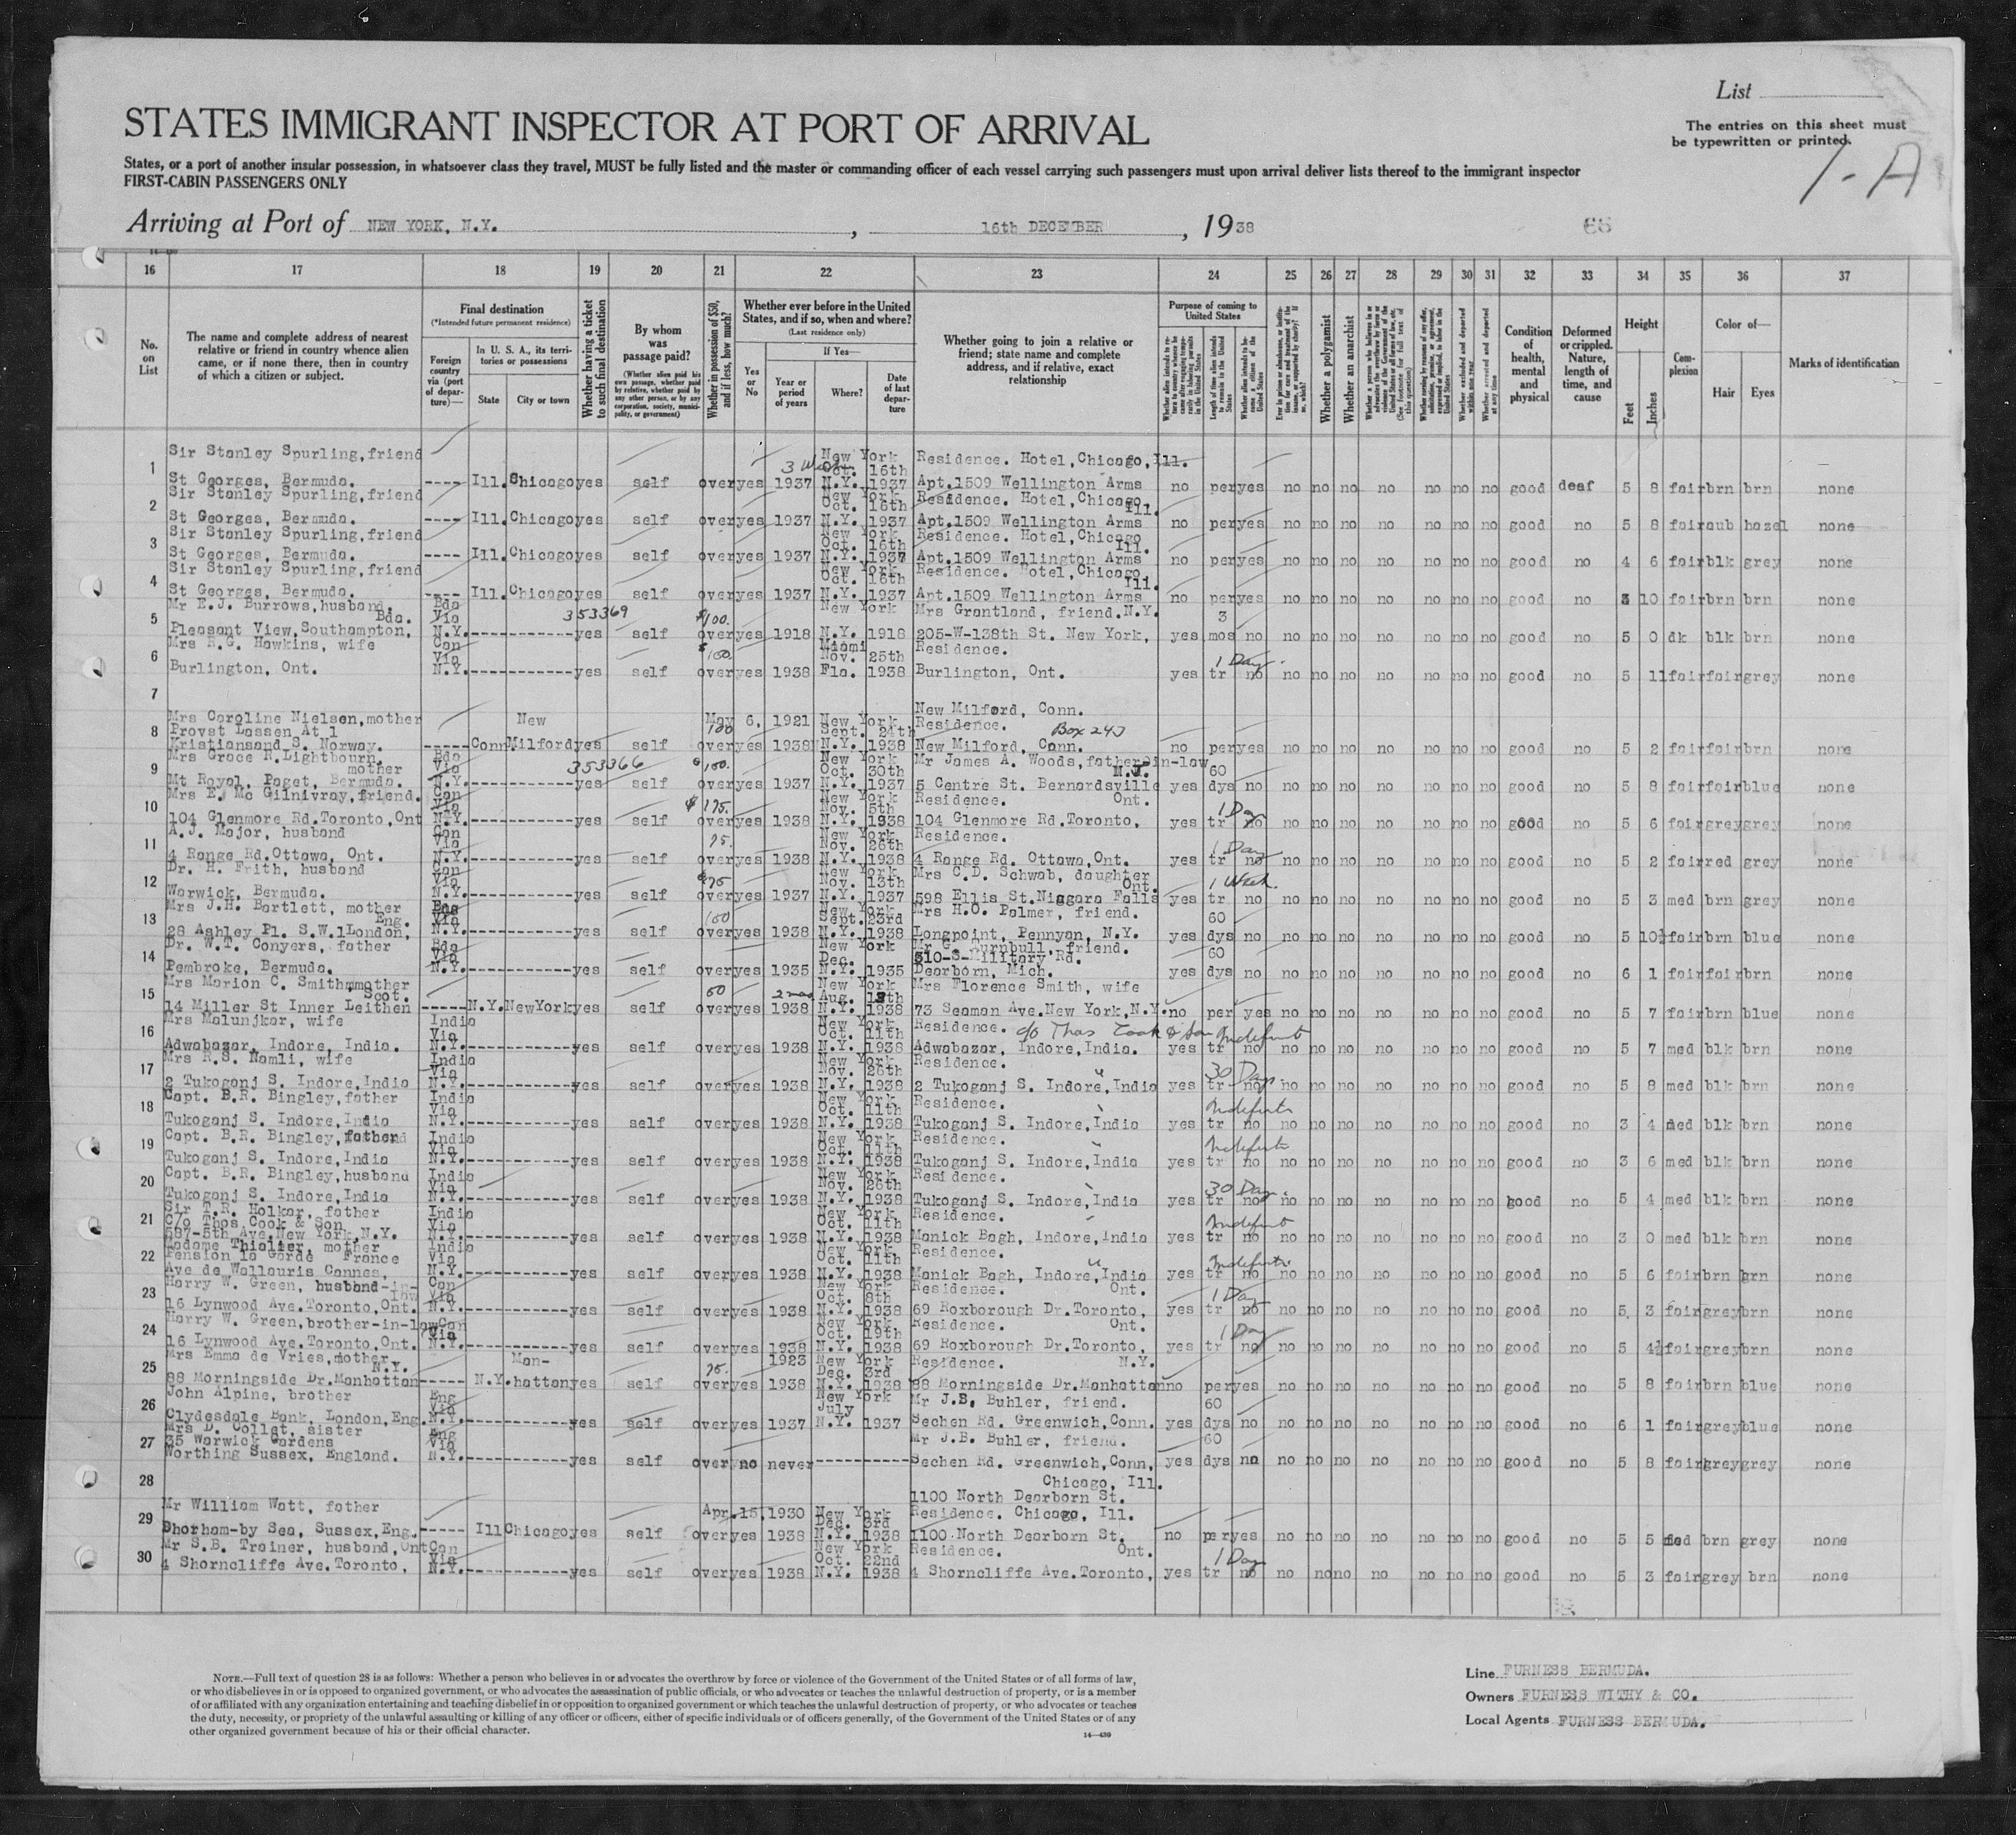 List
STATES IMMIGRANT INSPECTOR AT PORT OF ARRIVAL
The entries on this sheet must
be typewritten or printed.
1-A
States, or a port of another insular possession, in whatsoever class they travel, MUST be fully listed and the master or commanding officer of each vessel carrying such passengers must upon arrival deliver lists thereof to the immigrant inspector
FIRST-CABIN PASSENGERS ONLY
Arriving at Port of NEW YORK, N.Y., 16th DECEMBER, 1938
16 17 18 19 20 21 22 23 24 25 26 27 28 29 30 31 32 33 34 35 36 37
No. on List
The name and complete address of nearest relative or friend in country whence alien came, or if none there, then in country of which a citizen or subject.
Final destination
(*Intended future permanent residence)
Foreign country via (port of departure)—
In U. S. A., its territories or possessions
State
City or town
Whether having a ticket to such final destination
By whom was passage paid?
(Whether alien paid his own passage, whether paid by relative, whether paid by any other person, or by any corporation, society, municipality, or government)
Whether in possession of $50, and if less, how much?
Whether ever before in the United States, and if so, when and where?
(Last residence only)
Yes or No
If Yes—
Year or period of years
Where?
Date of last departure
Whether going to join a relative or friend; state name and complete address, and if relative, exact relationship
Purpose of coming to United States
Whether a polygamist
Whether an anarchist
Condition of health, mental and physical
Deformed or crippled. Nature, length of time, and cause
Height
Feet
Inches
Complexion
Color of—
Hair
Eyes
Marks of identification
1 Sir Stanley Spurling, friend St Georges, Bermuda. ---- Ill. Chicago yes self over yes 1937 New York Oct. 16th N.Y. 1937 Residence. Hotel, Chicago, Ill. Apt. 1509 Wellington Arms no per yes no no no no no no no good deaf 5 8 fair brn brn none
2 Sir Stanley Spurling, friend St Georges, Bermuda. ---- Ill. Chicago yes self over yes 1937 New York Oct. 16th N.Y. 1937 Residence. Hotel, Chicago, Ill. Apt. 1509 Wellington Arms no per yes no no no no no no no good no 5 8 fair aub hazel none
3 Sir Stanley Spurling, friend St Georges, Bermuda. ---- Ill. Chicago yes self over yes 1937 New York Oct. 16th N.Y. 1937 Residence. Hotel, Chicago Ill. Apt. 1509 Wellington Arms no per yes no no no no no no no good no 4 6 fair blk grey none
4 Sir Stanley Spurling, friend St Georges, Bermuda. ---- Ill. Chicago yes self over yes 1937 New York Oct. 16th N.Y. 1937 Residence. Hotel, Chicago, Ill. Apt. 1509 Wellington Arms no per yes no no no no no no no good no 3 10 fair brn brn none
5 Mr E.J. Burrows, husband. Bda. Pleasant View, Southampton, Bda Via N.Y. 353369 yes self $100. over yes 1918 New York N.Y. 1918 Mrs Grantland, friend. N.Y. 205-W-138th St. New York, yes 3 mos no no no no no no no no good no 5 0 dk blk brn none
6 Mrs R.G. Hawkins, wife Burlington, Ont. Can Via N.Y. yes self $100. over yes 1938 Miami Nov. 25th Fla. 1938 Residence. Burlington, Ont. yes 1 Day tr no no no no no no no no good no 5 11 fair fair grey none
7
8 Mrs Caroline Nielsen, mother Provst Lassen At 1 Kristiansand S. Norway. ----- Conn New Milford yes self 100 over yes May 6, 1921 1938 New York Sept. 24th N.Y. 1938 New Milford, Conn. Residence. Box 243 New Milford, Conn. no per yes no no no no no no no good no 5 2 fair fair brn none
9 Mrs Grace R. Lightbourn, mother Mt Royal, Paget, Bermuda. Bda Via N.Y. 353366 yes self $100. over yes 1937 New York Oct. 30th N.Y. 1937 Mr James A. Woods, father-in-law N.J. 5 Centre St. Bernardsville yes 60 dys no no no no no no no no good no 5 8 fair fair blue none
10 Mrs E. Mc Gilnivray, friend. 104 Glenmore Rd. Toronto, Ont Can Via N.Y. yes self $175. over yes 1938 New York Nov. 5th N.Y. 1938 Residence. Ont. 104 Glenmore Rd. Toronto, yes 1 Day tr no no no no no no no no good no 5 6 fair grey grey none
11 A.J. Major, husband 4 Range Rd. Ottawa, Ont. Can Via N.Y. yes self 75. over yes 1938 New York Nov. 26th N.Y. 1938 Residence. 4 Range Rd. Ottawa, Ont. yes 1 Day tr no no no no no no no no good no 5 2 fair red grey none
12 Dr. H. Frith, husband Warwick, Bermuda. Can Via N.Y. yes self $75 over yes 1937 New York Nov. 13th N.Y. 1937 Mrs C.D. Schwab, daughter Ont. 598 Ellis St. Niagara Falls yes 1 Week. tr no no no no no no no no good no 5 3 med brn grey none
13 Mrs J.H. Bartlett, mother Eng. 28 Ashley Pl. S.W.1 London, Via N.Y. yes self 100 over yes 1938 New York Sept. 23rd N.Y. 1938 Mrs H.O. Palmer, friend. Longpoint, Pennyan, N.Y. yes 60 dys no no no no no no no no good no 5 10½ fair brn blue none
14 Dr. W.T. Conyers, father Pembroke, Bermuda. Bda Via N.Y. yes self over yes 1935 New York Dec. N.Y. 1935 Mr G. Turnbull, friend. 310-S-Military Rd. Dearborn, Mich. yes 60 dys no no no no no no no no good no 6 1 fair fair brn none
15 Mrs Marion C. Smith, mother Scot. 14 Miller St Inner Leithen ----- N.Y. New York yes self 60 over yes 1938 New York Aug. 13th N.Y. 1938 Mrs Florence Smith, wife 73 Seaman Ave. New York, N.Y. no per yes no no no no no no no good no 5 7 fair brn blue none
16 Mrs Malunjkar, wife Adwabazar, Indore, India. India Via N.Y. yes self over yes 1938 New York Oct. 11th N.Y. 1938 Residence. c/o Thos Cook & Son Adwabazar, Indore, India. yes Indefinite tr no no no no no no no no good no 5 7 med blk brn none
17 Mrs R.S. Namli, wife 2 Tukoganj S. Indore, India India Via N.Y. yes self over yes 1938 New York Nov. 26th N.Y. 1938 Residence. 2 Tukoganj S. Indore, India yes 30 Days tr no no no no no no no no good no 5 8 med blk brn none
18 Capt. B.R. Bingley, father Tukoganj S. Indore, India India Via N.Y. yes self over yes 1938 New York Oct. 11th N.Y. 1938 Residence. Tukoganj S. Indore, India yes Indefinite tr no no no no no no no no good no 3 4 med blk brn none
19 Capt. B.R. Bingley, father Tukoganj S. Indore, India India Via N.Y. yes self over yes 1938 New York Oct. 11th N.Y. 1938 Residence. Tukoganj S. Indore, India yes Indefinite tr no no no no no no no no good no 3 6 med blk brn none
20 Capt. B.R. Bingley, husband Tukoganj S. Indore, India India Via N.Y. yes self over yes 1938 New York Nov. 26th N.Y. 1938 Residence. Tukoganj S. Indore, India yes 30 Day. tr no no no no no no no no good no 5 4 med blk brn none
21 Sir T.R. Holkar, father C/o Thos Cook & Son 587-5th Ave. New York, N.Y. India Via N.Y. yes self over yes 1938 New York Oct. 11th N.Y. 1938 Residence. Manick Bagh, Indore, India yes Indefinite tr no no no no no no no no good no 3 0 med blk brn none
22 Madame mother Pension la Garde France Ave de Wallauris Cannes, India Via N.Y. yes self over yes 1938 New York Oct. 11th N.Y. 1938 Residence. Manick Bagh, Indore, India yes Indefinite tr no no no no no no no no good no 5 6 fair brn none
23 Harry W. Green, 16 Lynwood Ave. Toronto, Ont. Can Via N.Y. yes self over yes 1938 New York Oct. 8th N.Y. 1938 Residence. Ont. 69 Roxborough Dr. Toronto, yes 1 Day tr no no no no no no no no good no 5 3 fair grey brn none
24 Harry W. Green, brother-in-law 16 Lynwood Ave. Toronto, Ont. Can Via N.Y. yes self over yes 1938 New York Oct. 19th N.Y. 1938 Residence. Ont. 69 Roxborough Dr. Toronto, yes 1 Day tr no no no no no no no no good no 5 4½ fair grey brn none
25 Mrs Emma de Vries, mother N.Y. 88 Morningside Dr. Manhattan ----- N.Y. Man-hattan yes self 75. over yes 1923 1938 New York Dec. 3rd N.Y. 1938 Residence. N.Y. 88 Morningside Dr. Manhattan no per yes no no no no no no no good no 5 8 fair brn blue none
26 John Alpine, brother Clydesdale Bank, London, Eng. Eng Via N.Y. yes self over yes 1937 New York July N.Y. 1937 Mr J.B. Buhler, friend. Sechen Rd. Greenwich, Conn. yes 60 dys no no no no no no no no good no 6 1 fair grey blue none
27 Mrs D. Collet, sister 35 Warwick Gardens Worthing Sussex, England. Eng Via N.Y. yes self over no never Mr J.B. Buhler, friend. Sechen Rd. Greenwich, Conn, yes 60 dys no no no no no no no no good no 5 8 fair grey grey none
28
29 Mr William Watt, father Shorham-by Sea, Sussex, Eng. ----- Ill Chicago yes self over yes Apr. 15, 1930 1938 New York Dec. 3rd N.Y. 1938 Chicago, Ill. 1100 North Dearborn St. Residence. Chicago, Ill. 1100 North Dearborn St. no per yes no no no no no no no good no 5 5 med brn grey none
30 Mr S.B. Trainer, husband, Ont 4 Shorncliffe Ave. Toronto, Can Via N.Y. yes self over yes 1938 New York Oct. 22nd N.Y. 1938 Residence. Ont. 4 Shorncliffe Ave. Toronto, yes 1 Day tr no no no no no no no no good no 5 3 fair grey brn none
NOTE.—Full text of question 28 is as follows: Whether a person who believes in or advocates the overthrow by force or violence of the Government of the United States or of all forms of law,
or who disbelieves in or is opposed to organized government, or who advocates the assassination of public officials, or who advocates or teaches the unlawful destruction of property, or is a member
of or affiliated with any organization entertaining and teaching disbelief in or opposition to organized government or which teaches the unlawful destruction of property, or who advocates or teaches
the duty, necessity, or propriety of the unlawful assaulting or killing of any officer or officers, either of specific individuals or of officers generally, of the Government of the United States or of any
other organized government because of his or their official character.
14—430
Line FURNESS BERMUDA.
Owners FURNESS WITHY & CO.
Local Agents FURNESS BERMUDA.